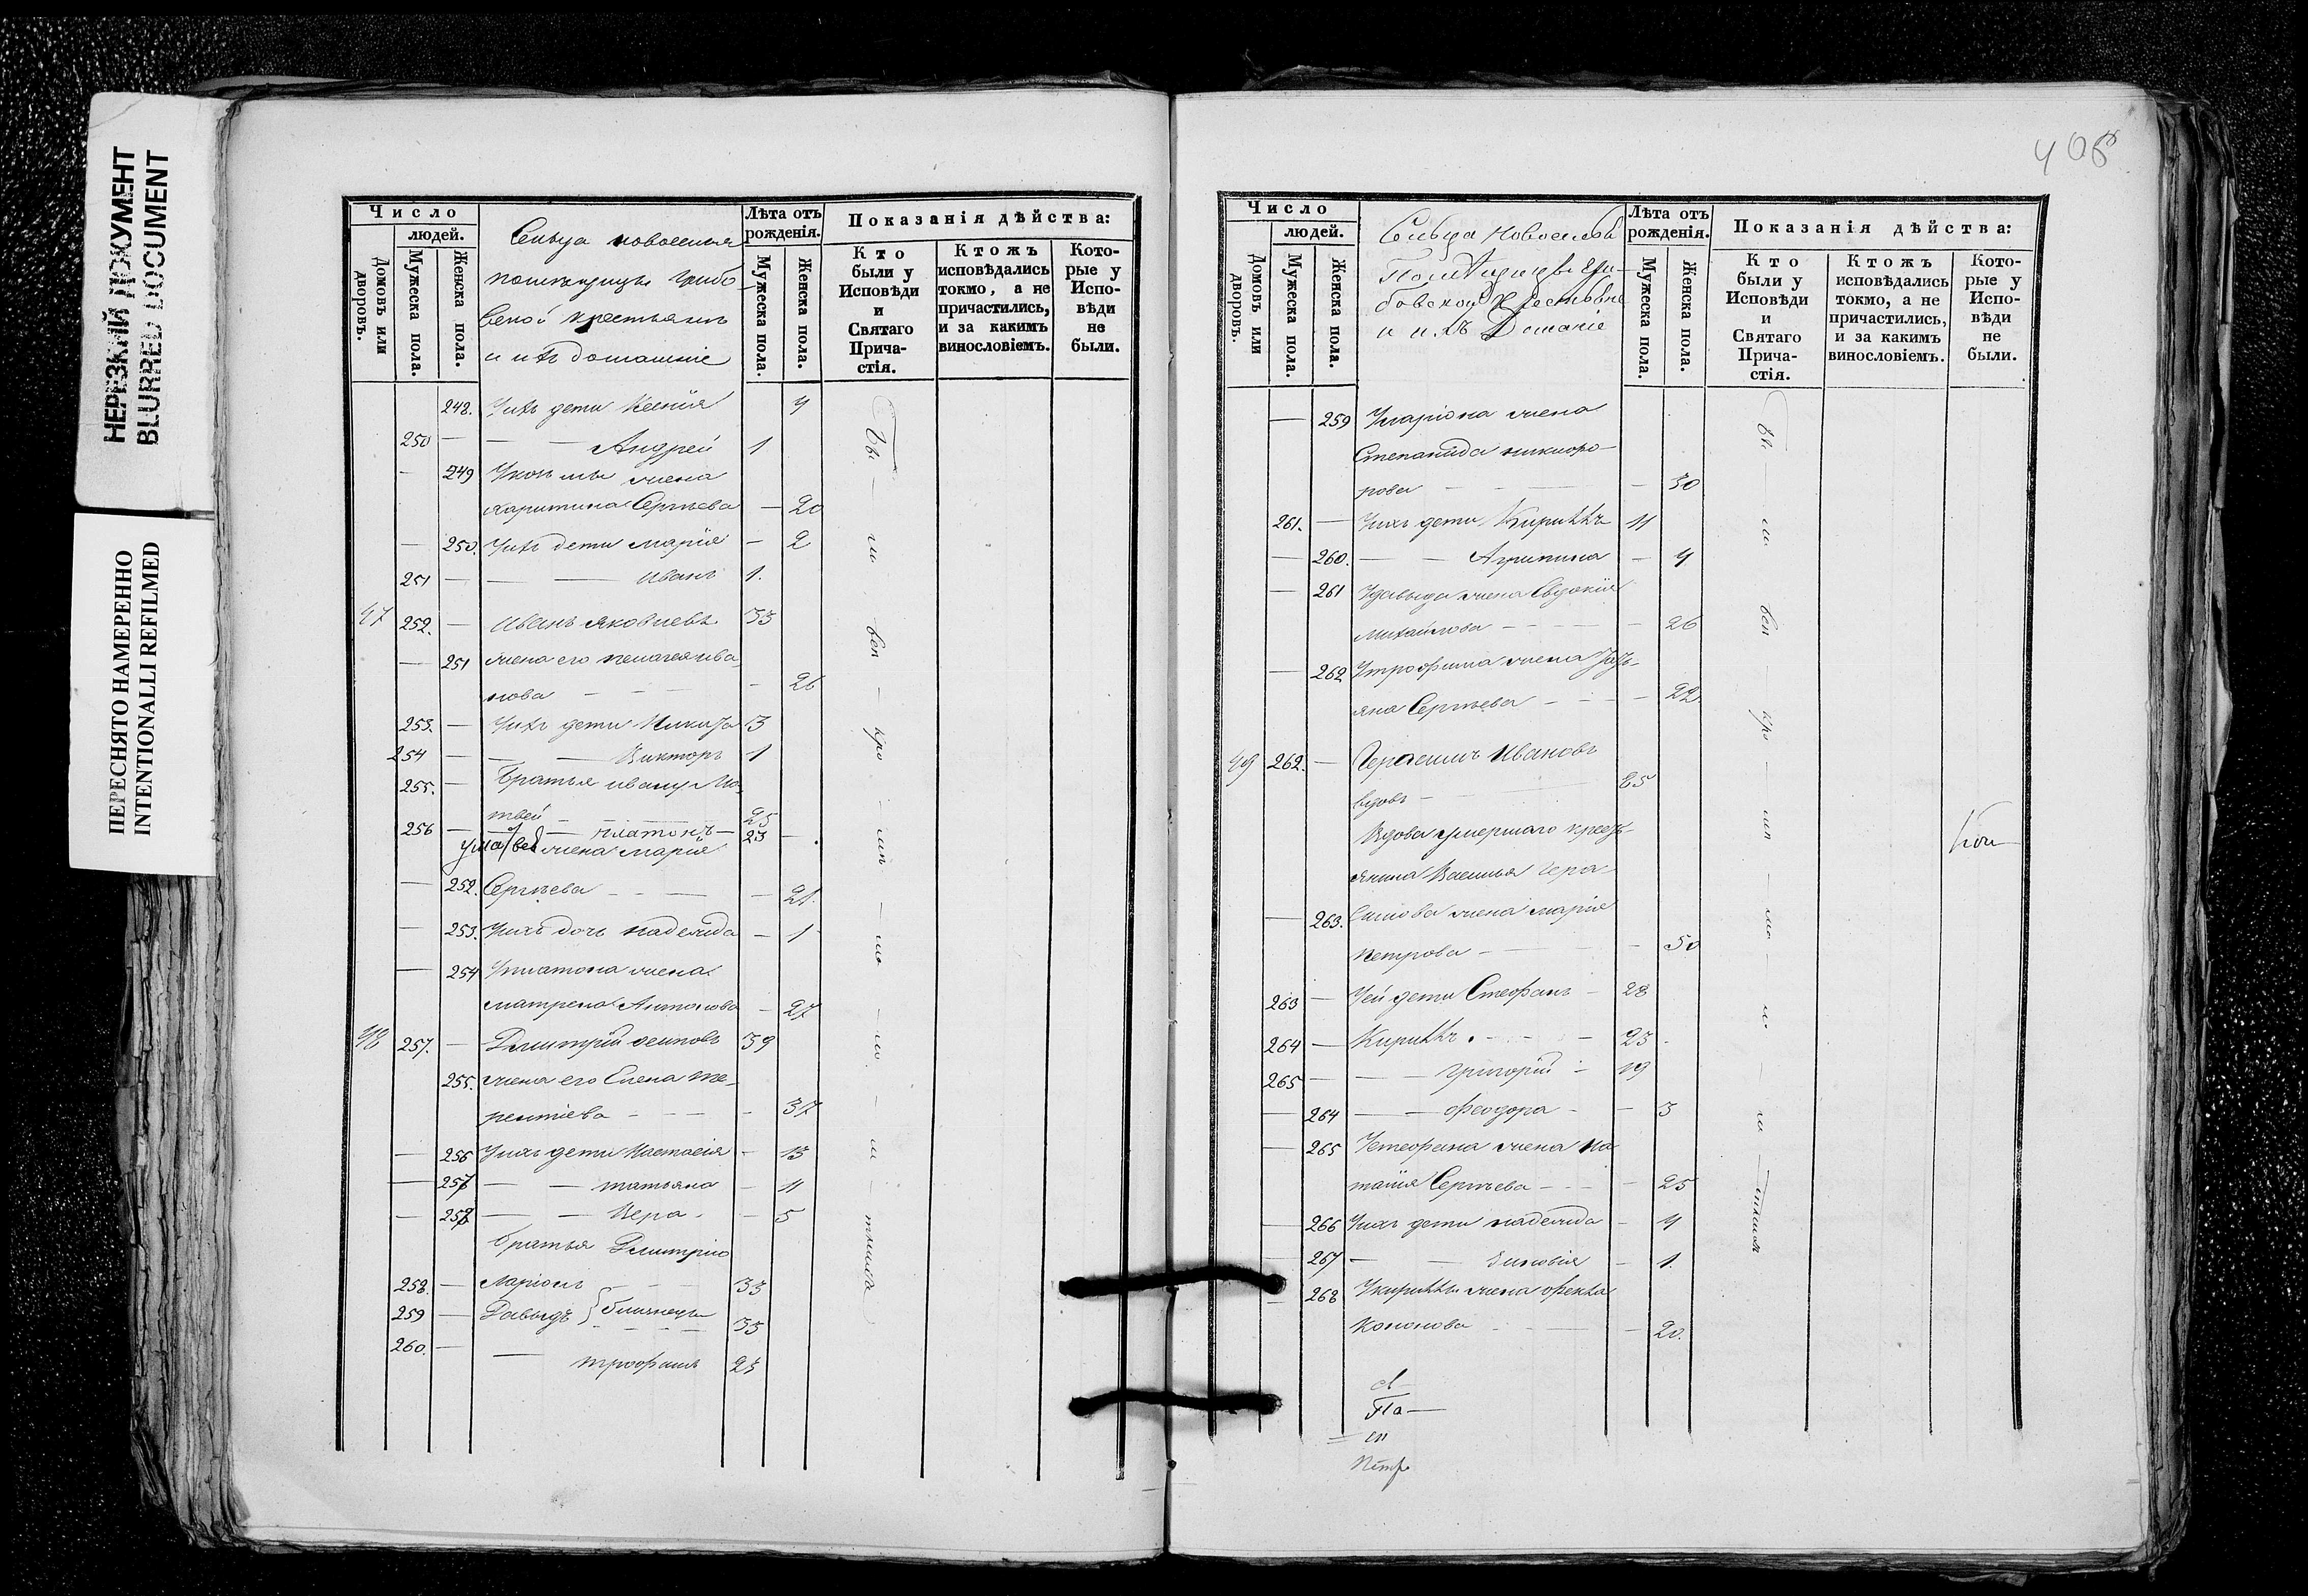 НЕРЕЗКИЙ ДОКУМЕНТ
BLURRED DOCUMENT
ПЕРЕСНЯТО НАМЕРЕННО
INTENTIONALLI REFILMED
Число
людей.
Домовъ или дворовъ.
Мужеска пола.
Женска пола.
Сельца новоселья
помѣщицы Грибо
вской крестьянъ
и ихъ домашніе
Лѣта отъ рожденія.
Мужеска пола.
Женска пола.
Показанія дѣйства:
Кто были у Исповѣди и Святаго Прича-стія.
Ктожъ исповѣдались токмо, а не причастились, и за какимъ винословіемъ.
Кото-рые у Испо-вѣди не были.
248. Уихъ дети Ксенія 4
250 — — — Андрей 1
— 249 жена
харитина Сергѣева — 20
— 250. Уихъ дети марія — 2
251 — — — иванъ 1.
47 252. — иванъ яковлевъ 33
— 251 жена его пелагея ива
нова — — — — 26
253. — Уихъ дети 3
254 — — — Викторъ 1
255. — Братья ивану Ма
твей — — 25
256 — — — платонъ — 23 —
жена марія
— 252. Сергѣева — — — 21.
— 253. Уихъ дочь надежда — 1
— 254 Уплатона жена
матрена Антонова — 27
48 257. — Димитрій осиповъ 39
255. жена его Елена те-
рентіева — — — — 37
— 256 Уихъ дети Настасія — 13
— 257 — — татьяна — 11
— 258 — — Вера — 5
братья Димитрію
258. — Ларіонъ — — 33
259 — Давыдъ } близнецы 33
260. — — трофимъ 25
Бы — ли — вси — кро — — — — —
408
Число
людей.
Домовъ или дворовъ.
Мужеска пола.
Женска пола.
Сельца Новоселья
Помѣщицы Гри-
бовской Крестьяне
и ихъ Домашніе
Лѣта отъ рожденія.
Мужеска пола.
Женска пола.
Показанія дѣйства:
Кто были у Исповѣди и Святаго Прича-стія.
Ктожъ исповѣдались токмо, а не причастились, и за какимъ винословіемъ.
Кото-рые у Испо-вѣди не были.
— 259 Уларіона жена
Степанида никифо-
рова — — — — 30
261. — Уихъ дети Кириллъ 11
— 260. — — Агрипина — 4
— 261 Удавыда жена Евдокія
михайлова — — — — 26
— 262 Утрофима жена
яна Сергѣева — — — — 22.
49 262. — Герасимъ Ивановъ
вдовъ — — 85
Вдова умершаго кресть-
янина Василья Гера-
— 263. симова жена марія
петрова — — — 50
263 — Уей дети Стефанъ — 28
264 — Кириллъ. — — — 23
265 — — — Григорій — 19
— 264 — — феодора — — 3
— 265 Устефана жена На
талія Сергѣева — — — 25
— 266 Уихъ дети надежда — 4
267 — — зиновія — 1.
— 268 Укириллы жена фекла
кононова — — — 20.